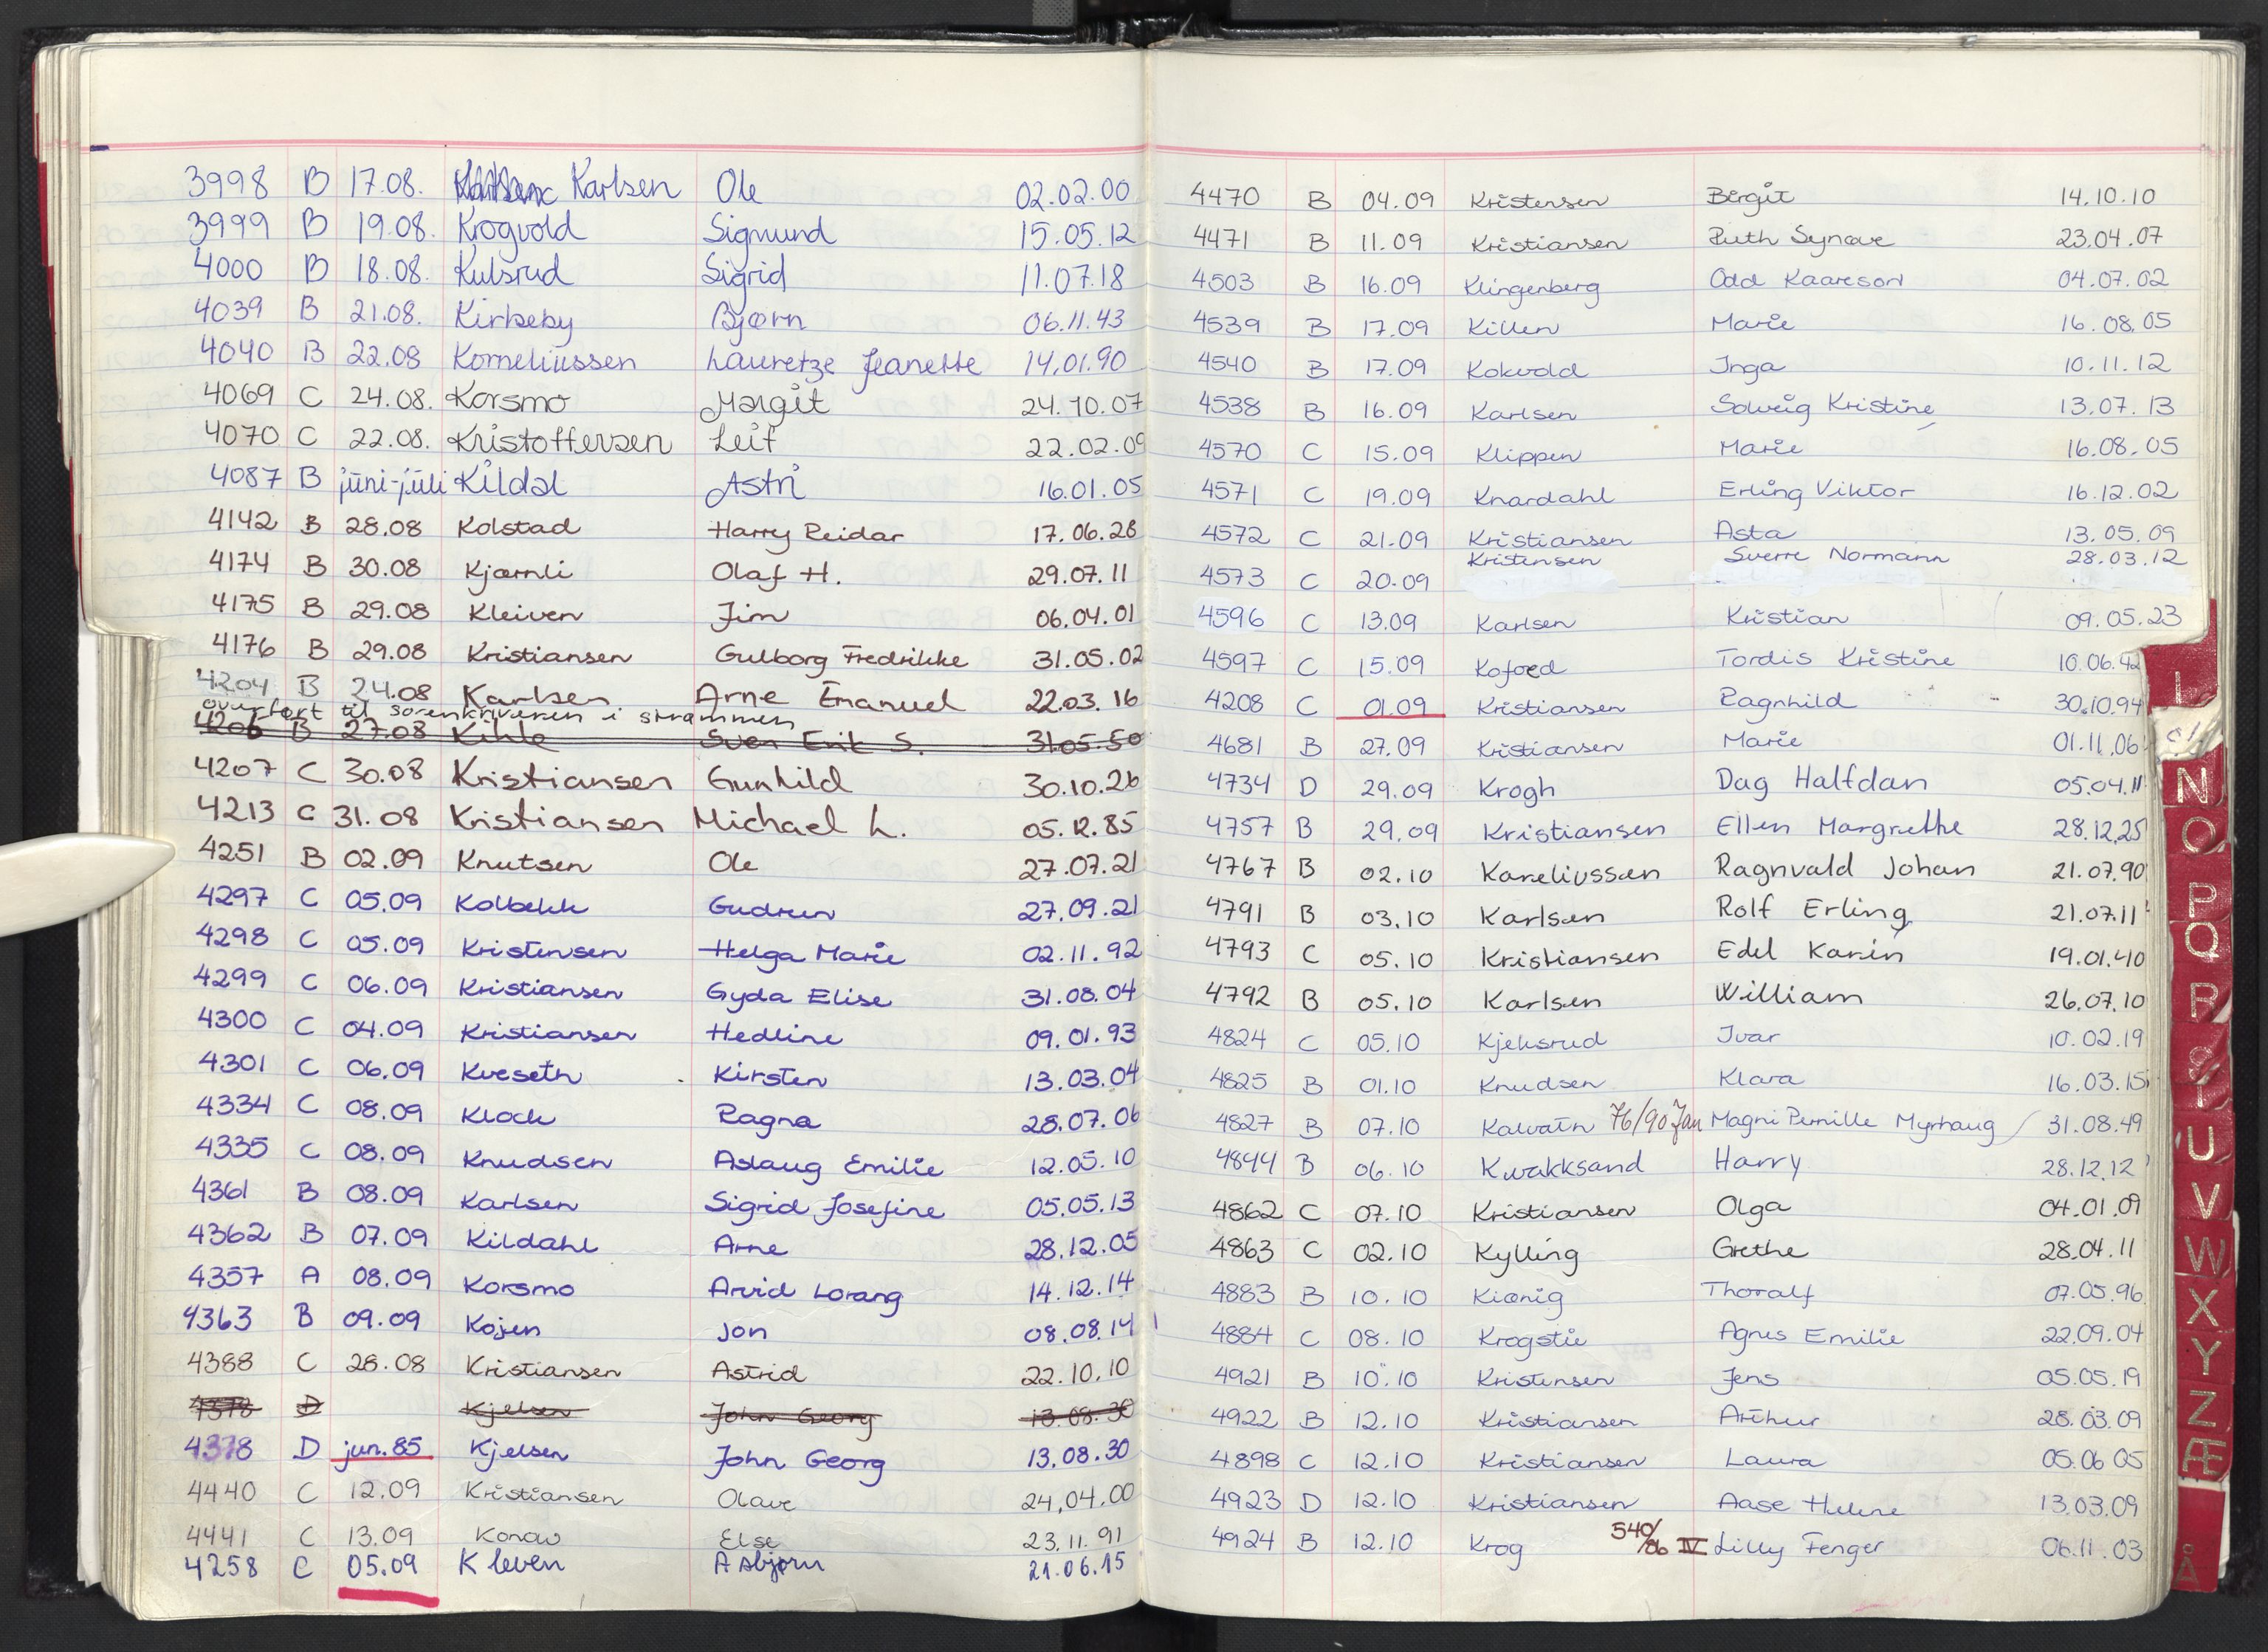 3998 B 17.08. Karlsen Ole 02.02.00
3999 B 19.08. Krogvold Sigmund 15.05.12
4000 B 18.08. Kulsrud Sigrid 11.07.18
4039 B 21.08. Kirkeby Bjørn 06.11.43
4040 B 22.08 Korneliussen Lauretze Jeanette 14.01.90
4069 C 24.08. Korsmo Margit 24.10.07
4070 C 22.08. Kristoffersen Leif 22.02.09
4087 B juni-juli Kildal Astri 16.01.05
4142 B 28.08 Kolstad Harry Reidar 17.06.28
4174 B 30.08 Kjærnli Olaf H. 29.07.11
4175 B 29.08 Kleiven Jim 06.04.01
4176 B 29.08 Kristiansen Gulborg Fredrikke 31.05.02
4204 B 24.08 Karlsen Arne Emanuel 22.03.16
overført til sorenskriveren i strammen
4206 B 27.08 Kihle Sven Erik S. 31.05.50
4207 C 30.08 Kristiansen Gunhild 30.10.26
4213 C 31.08 Kristiansen Michael L. 05.12.85
4251 B 02.09 Knutsen Ole 27.07.21
4297 C 05.09 Kolbekk Gudrun 27.09.21
4298 C 05.09 Kristensen Helga Marie 02.11.92
4299 C 06.09 Kristiansen Gyda Elise 31.08.04
4300 C 04.09 Kristiansen Hedline 09.01.93
4301 C 06.09 Kveseth Kirsten 13.03.04
4334 C 08.09 Klock Ragna 28.07.06
4335 C 08.09 Knudsen Aslaug Emilie 12.05.10
4361 B 08.09 Karlsen Sigrid Josefine 05.05.13
4362 B 07.09 Kildahl Arne 28.12.05
4357 A 08.09 Korsmo Arvid Lorang 14.12.14
4363 B 09.09 Kojen Jon 08.08.14
4388 C 28.08 Kristiansen Astrid 22.10.10
4378 D Kjelsen John Georg 13.08.30
4378 D jun.85 Kjelsen John Georg 13.08.30
4440 C 12.09 Kristiansen Olave 24.04.00
4441 C 13.09 Konow Else 23.11.91
4258 C 05.09 Kleven Asbjørn 21.06.15
4470 B 04.09 Kristensen Birgit 14.10.10
4471 B 11.09 Kristiansen Ruth Synøve 23.04.07
4503 B 16.09 Klingenberg Odd Kaareson 04.07.02
4539 B 17.09 Killen Marie 16.08.05
4540 B 17.09 Kokvold Inga 10.11.12
4538 B 16.09 Karlsen Solveig Kristine 13.07.13
4570 C 15.09 Klippen Marie 16.08.05
4571 C 19.09 Knardahl Erling Viktor 16.12.02
4572 C 21.09 Kristiansen Asta 13.05.09
4573 C 20.09 Kristensen Sverre Normann 28.03.12
4596 C 13.09 Karlsen Kristian 09.05.23
4597 C 15.09 Kofoed Tordis Kristine 10.06.42
4208 C 01.09 Kristiansen Ragnhild 30.10.94
4681 B 27.09 Kristiansen Marie 01.11.06
4734 D 29.09 Krogh Dag Halfdan 05.04.11
4757 B 29.09 Kristiansen Ellen Margrethe 28.12.25
4767 B 02.10 Kareliussen Ragnvald Johan 21.07.90
4791 B 03.10 Karlsen Rolf Erling 21.07.11
4793 C 05.10 Kristiansen Edel Karin 19.01.40
4792 B 05.10 Karlsen William 26.07.10
4824 C 05.10 Kjeksrud Ivar 10.02.19
4825 B 01.10 Knudsen Klara 16.03.15
4827 B 07.10 Kalvatn 76/90 Jan Magni Pernille Myrhaug 31.08.49
4844 B 06.10 Kvakksand Harry 28.12.12
4862 C 07.10 Kristiansen Olga 04.01.09
4863 C 02.10 Kylling Grethe 28.04.11
4883 B 10.10 Kiønig Thoralf 07.05.96
4884 C 08.10 Krogstie Agnes Emilie 22.09.04
4921 B 10.10 Kristensen Jens 05.05.19
4922 B 12.10 Kristiansen Arthur 28.03.09
4898 C 12.10 Kristiansen Laura 05.06 05
4923 D 12.10 Kristiansen Aase Helene 13.03.09
4924 B 12.10 Krog 540/86 IV Lilly Fenger 06.11.03
L
N
O
P
Q
R
U
V
W
X
Y
Z
Æ
Å